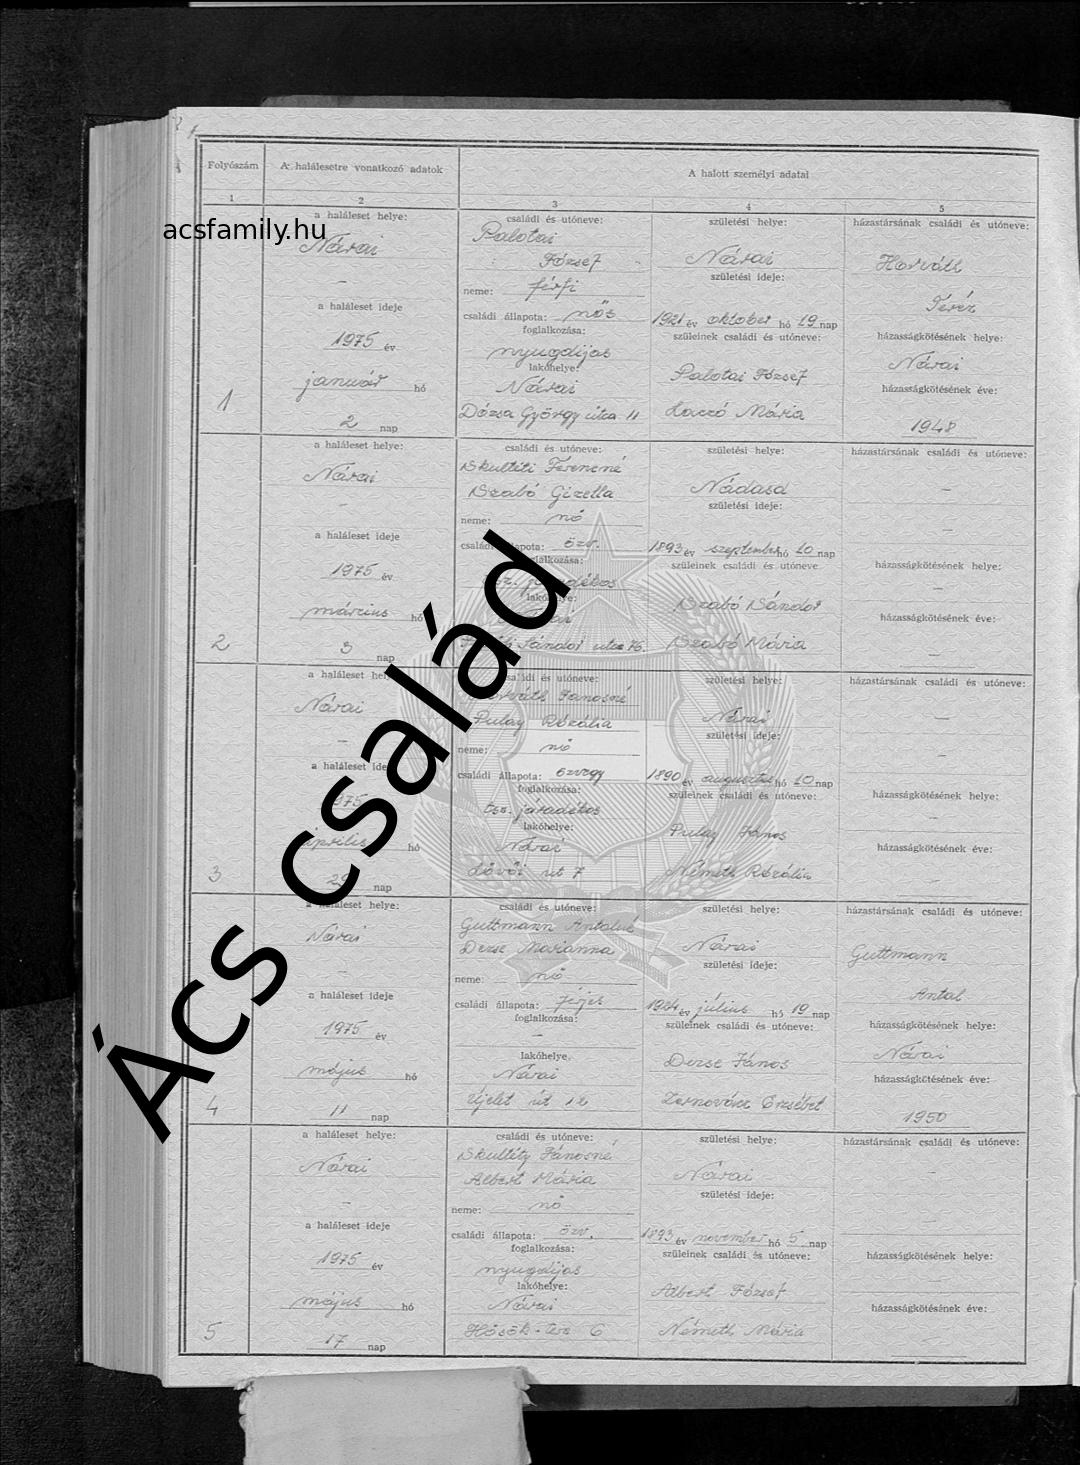 Folyószám
A halálesetre vonatkozó adatok
A halott személyi adatai
1
2
3
4
5
acsfamily.hu
Ács család
a haláleset helye:
Nárai
—
a haláleset ideje
1975 év
január hó
2 nap
1
családi és utóneve:
Palotai
József
neme: férfi
családi állapota: nős
foglalkozása:
nyugdíjas
lakóhelye:
Nárai
Dózsa György utca 11
születési helye:
Nárai
születési ideje:
1921 év október hó 19 nap
szüleinek családi és utóneve:
Palotai József
Mária
házastársának családi és utóneve:
Horváth
Teréz
házasságkötésének helye:
Nárai
házasságkötésének éve:
1948
a haláleset helye:
Nárai
—
a haláleset ideje
1975 év
március hó
3 nap
2
családi és utóneve:
Skultéti Ferencné
Szabó Gizella
neme: nő
családi állapota: özv.
foglalkozása:
járadékos
lakóhelye:
Nárai
Sándor utca 76.
születési helye:
Nádasd
születési ideje:
1893 év szeptember hó 20 nap
szüleinek családi és utóneve
Szabó Sándor
Szabó Mária
házastársának családi és utóneve:
—
—
házasságkötésének helye:
—
házasságkötésének éve:
—
a haláleset helye:
Nárai
—
a haláleset ideje
1975
április hó
nap
3
családi és utóneve:
Horváth Jánosné
Pulay Rozália
neme: nő
családi állapota: özvegy
foglalkozása:
tsz. járadékos
lakóhelye:
Nárai
út 7
születési helye:
Nárai
születési ideje:
1890 év augusztus hó 20 nap
szüleinek családi és utóneve:
Pulay János
Németh Rozália
házastársának családi és utóneve:
—
—
házasságkötésének helye:
—
házasságkötésének éve:
—
a haláleset helye:
Nárai
—
a haláleset ideje
1975 év
május hó
11 nap
4
családi és utóneve:
Guttmann Antalné
Dezse Marianna
neme: nő
családi állapota: férjes
foglalkozása:
—
lakóhelye:
Nárai
Újélet út 12
születési helye:
Nárai
születési ideje:
1924 év július hó 19 nap
szüleinek családi és utóneve:
Dezse János
Erzsébet
házastársának családi és utóneve:
Guttmann
Antal
házasságkötésének helye:
Nárai
házasságkötésének éve:
1950
a haláleset helye:
Nárai
—
a haláleset ideje
1975 év
május hó
17 nap
5
családi és utóneve:
Skultéty Jánosné
Albert Mária
neme: nő
családi állapota: özv.
foglalkozása:
nyugdíjas
lakóhelye:
Nárai
Hősök-tere 6
születési helye:
Nárai
születési ideje:
1893 év november hó 5 nap
szüleinek családi és utóneve:
Albert József
Németh Mária
házastársának családi és utóneve:
—
—
házasságkötésének helye:
—
házasságkötésének éve:
—